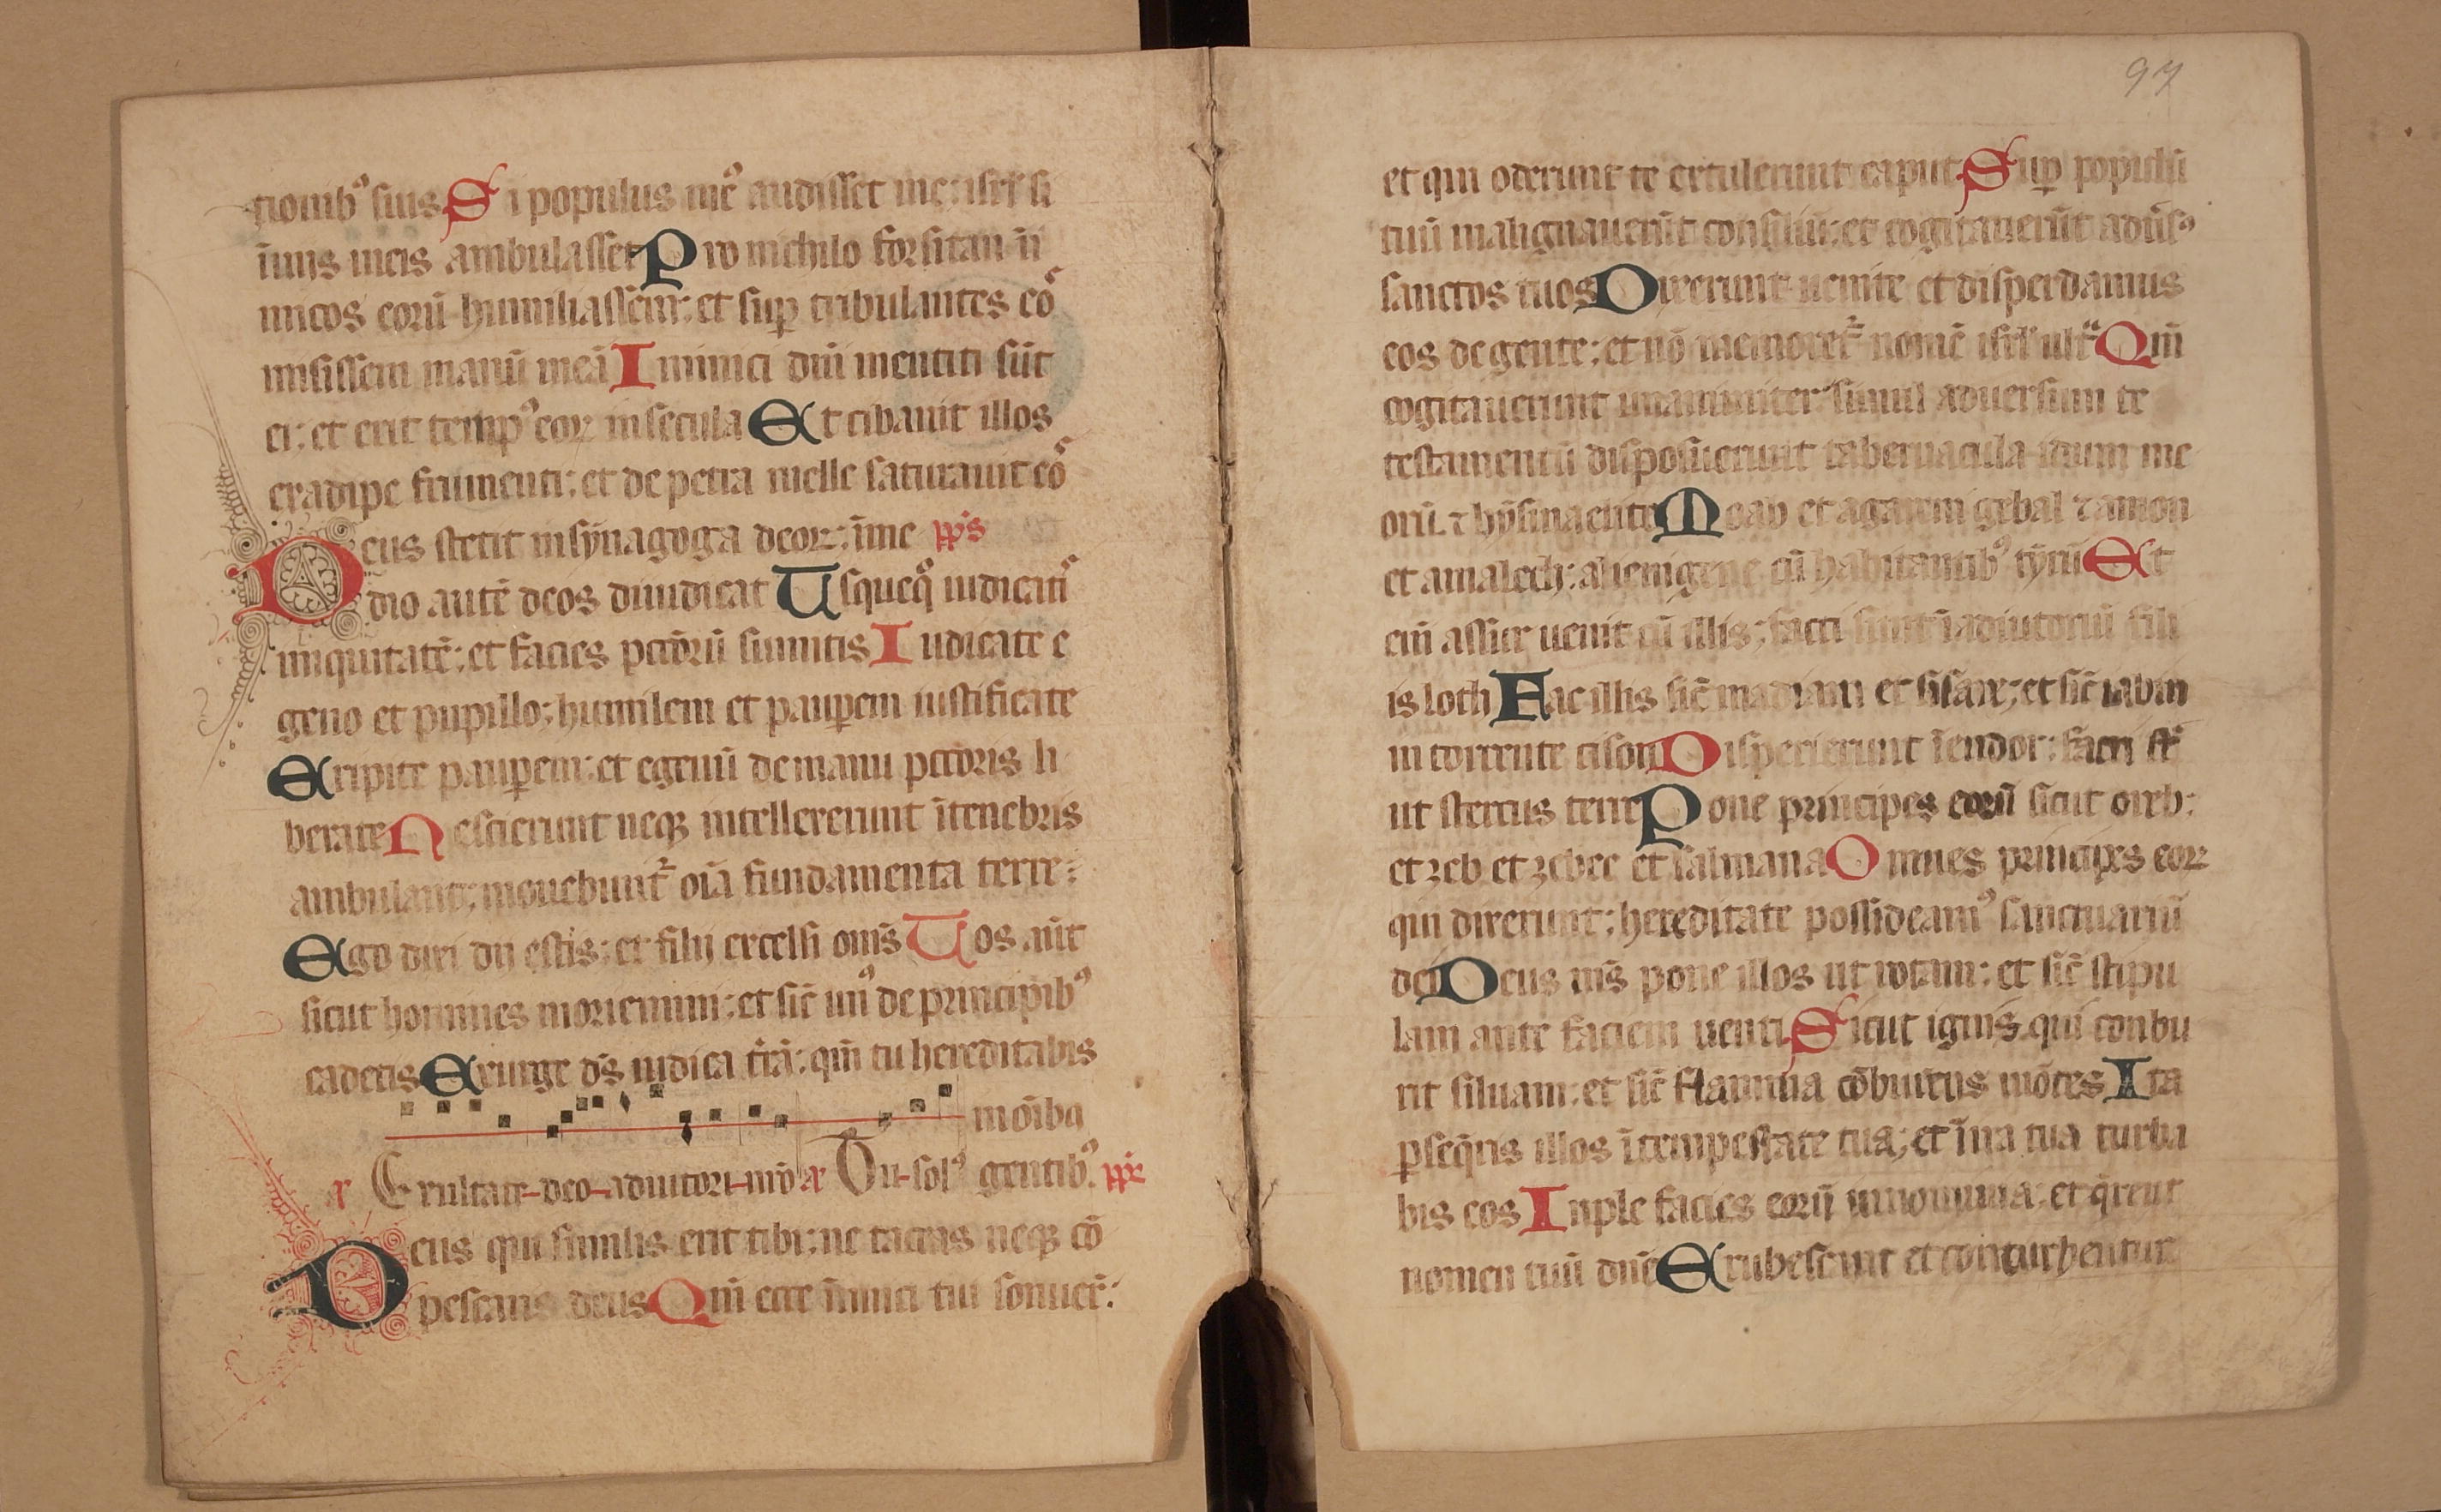 tionibꝰ suis Si populus meꝰ audisset me: isrl̄ si
ī uiis meis ambulasset Pro nichilo forsitan in
micos eorū humiliassem: et suꝑ tribulantes eoˢ
misissem manū meā Inimici dn̄i mentiti sūt
ei: et erit tempꝰ eoꝝ in secula Et cibauit illos
ex adipe frumenti: et de petra melle saturauit eoˢ
Deus stetit in synagoga deoꝝ: ī me pp̄s
dio autē deos diiudicat Usquequo iudicatiˢ
iniquitatē: et facies pctōrū sumitis Iudicate e
geno et pupillo: humilem et pauꝑem iustificate
Eripite pauꝑem: et egenū de manu pctōris li
berate Nescierunt neqꝫ intellexerunt ī tenebris
ambulant: mouebuntᷣ oīa fundamenta terre:
Ego dixi dii estis: et filij excelsi om̄s Uos aūt
sicut homines moriemini: et sic̄ unꝰ de principibꝰ
cadetis Exurge ds̄ iudica t̄rā: qm̄ tu hereditabis
in oībꝰ
a Exultate deo adiutori nr̄o a Tu solꝰ gentibꝰ. pp̄s
Deus quis similis erit tibi: ne taceas neqꝫ cō
pescaris deus Qm̄ ecce īnimici tui sonuer̄:
97
et qui oderunt te extulerunt caput Suꝑ populū
tuū malignauerūt consiliū: et cogitauerūt adūsˢ
sanctos tuos Dixerunt uenite et disperdamus
eos de gente: et nō memoretᷣ nomē isrl̄ ultᵃ Qm̄
cogitauerunt unanimiter simul aduersum te
testamentū disposuerunt tabernacula idum me
orū. ⁊ hysmaelite Moab et agareni gebal ⁊ amon
et amalech: alienigene cū habitantibꝰ tyrū Et
eni assur uenit cū illis: facti sunt ī adiutoriū fili
is loth Fac illis sic̄ madian et sisare: et sic̄ iabin
in torrente cison Disperierunt ī endor: facti st̄
ut stercus terre Pone principes eorū sicut oreb:
et zeb et zebee et salmana Omnes principes eoꝝ
qui dixerunt: hereditate possideamꝰ sanctuariū
dei Deus ms̄ pone illos ut rotam: et sic̄ stipu
lam ante faciem uenti Sicut ignis qui conbu
rit siluam: et sic̄ flamma cōburens mōtes Ita
ꝑseqr̄is illos ī tempestate tua: et ī ira tua turba
bis eos Inple facies eorū ignominia: et qr̄ent
nomen tuū dn̄e Erubescant et conturbentur